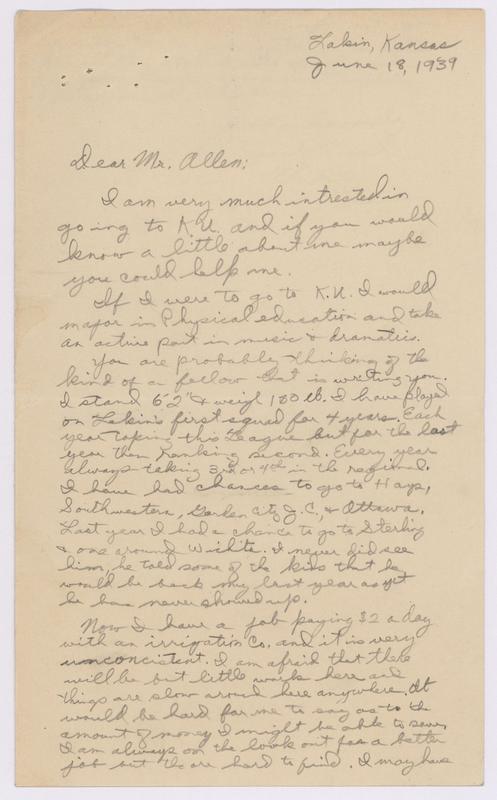 Lakin, Kansas
June 18, 1939
Dear Mr. Allen:
I am very much intrested in
going to K.U. and if you would
know a little about me maybe
you could help me.
If I were to go to K.U. I would
major in Physical education and take
an active part in music & dramatic.
You are probably thinking of the
kind of a fellow that is writing you.
I stand 6'2" & weigh 180 lb. I have played
on Lakin's first squad for 4 years. Each
year taking this League but for the last
year then Ranking second. Every year
always taking 3rd or 4th in the regional.
I have had chances to go to Hays,
Southwestern, Garden City J.C., & Ottawa.
Last year I had a chance to go to Sterling
& one around Wichita. I never did see
him, he told some of the kids that he
would be back my last year as yet
he has never showed up.
Now I have a job paying $2 a day
with an irrigation Co. and it is very
unconcistent. I am afraid that there
will be but little work here and
things are slow around here anywhere. It
would be hard for me to say as to the
amount of money I might be able to save.
I am always on the look out for a better
job but the are hard to find. I may have